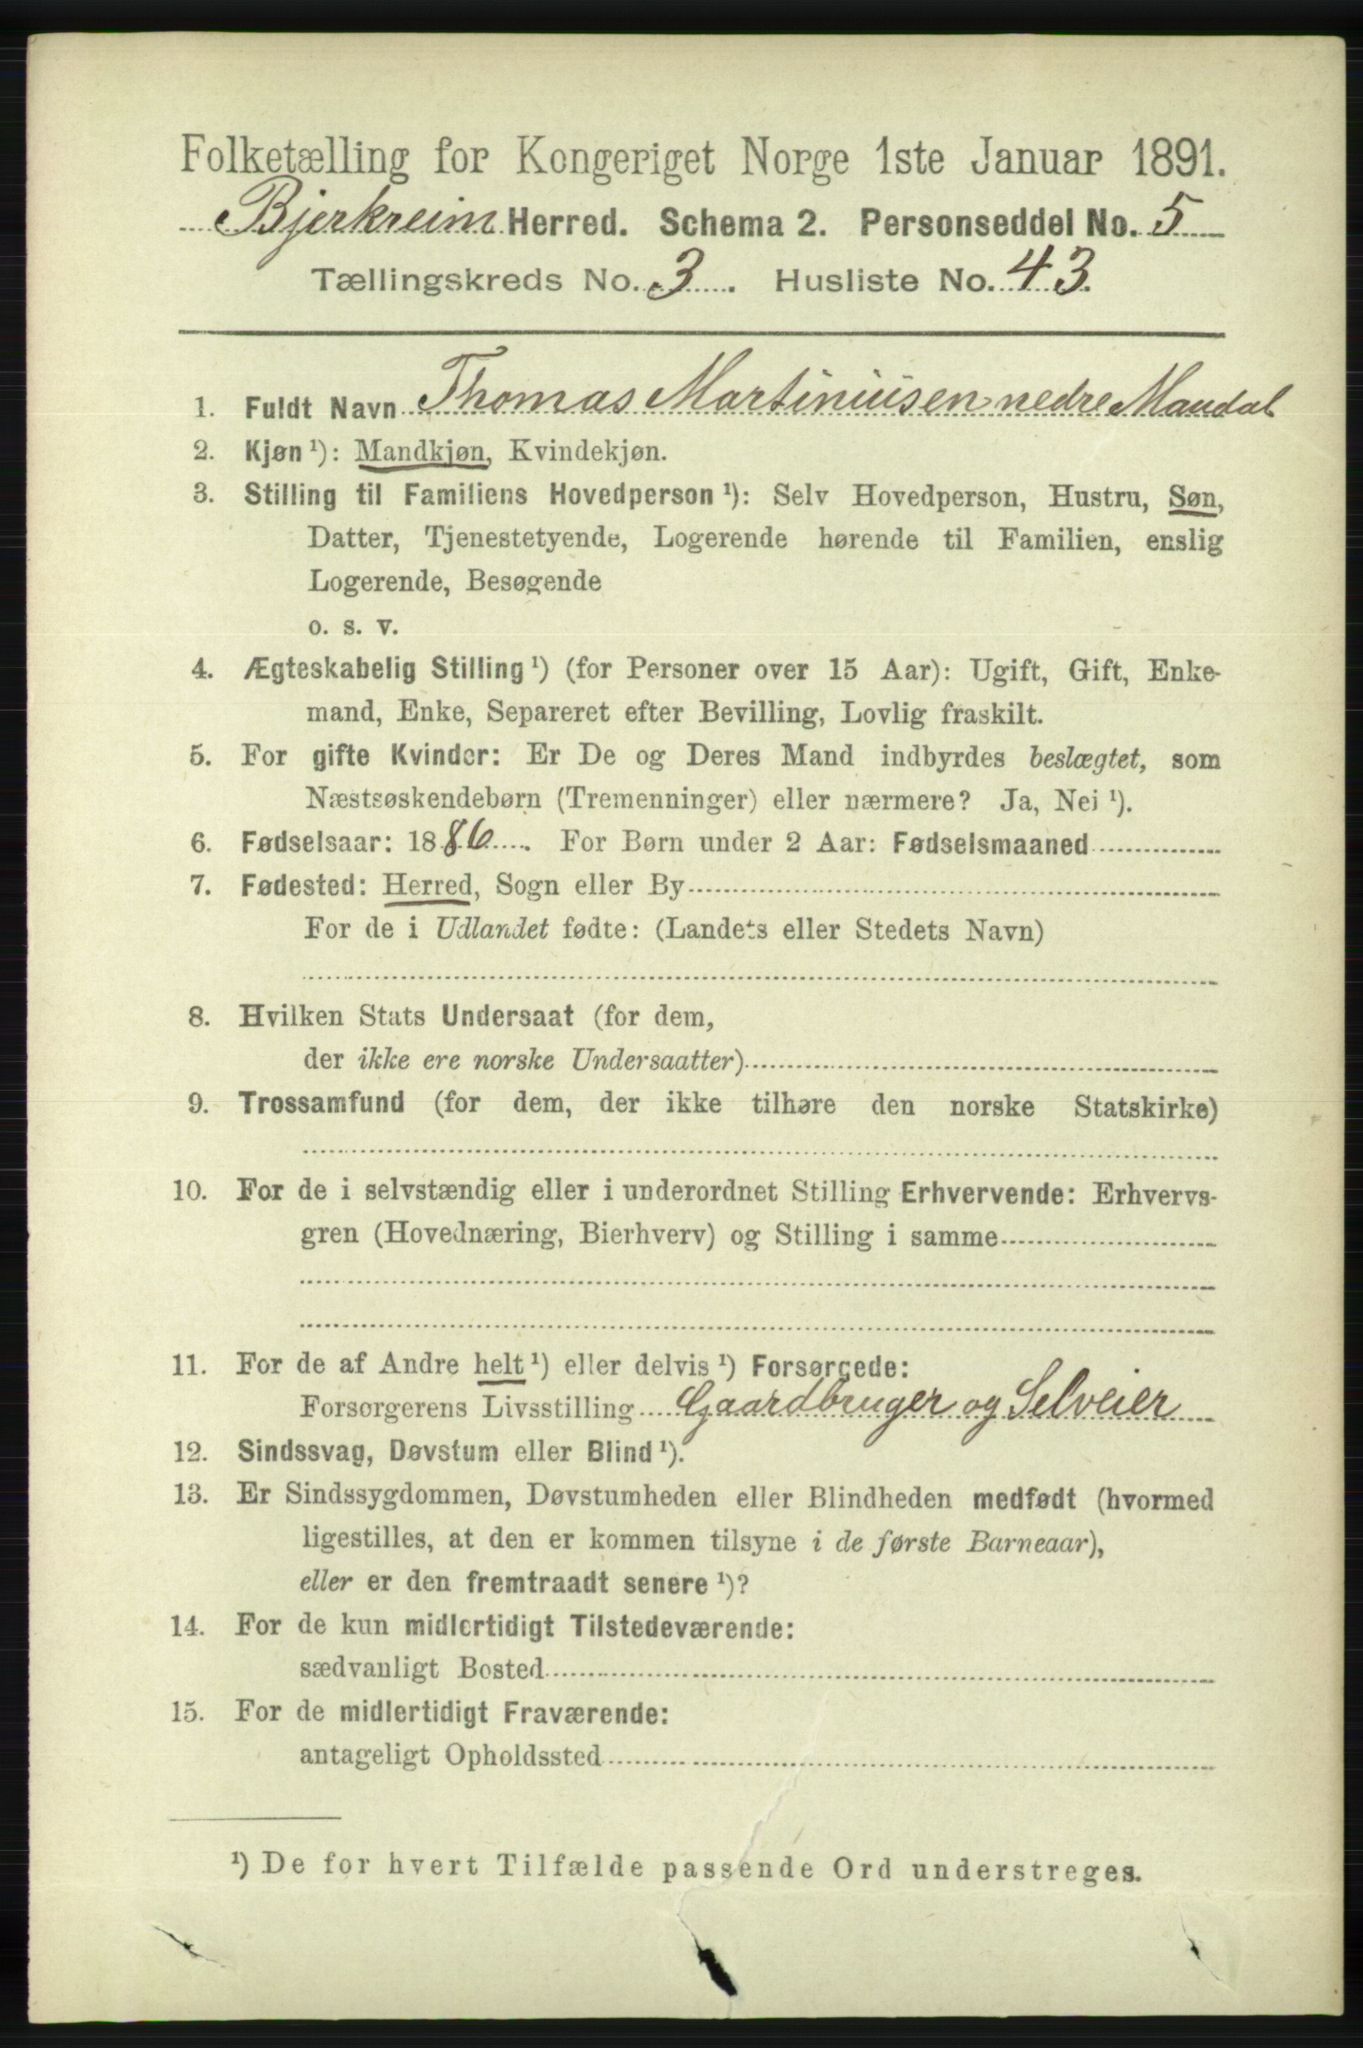 Folketælling for Kongeriget Norge 1ste Januar 1891.
Bjerkreim Herred. Schema 2. Personseddel No. 5
Tællingskreds No. 3. Husliste No. 43.
1. Fuldt Navn Thomas Martiniusen nedre Maudal
2. Kjøn ¹): Mandkjøn, Kvindekjøn.
3. Stilling til Familiens Hovedperson ¹): Selv Hovedperson, Hustru, Søn,
Datter, Tjenestetyende, Logerende hørende til Familien, enslig
Logerende, Besøgende
o. s. v.
4. Ægteskabelig Stilling ¹) (for Personer over 15 Aar): Ugift, Gift, Enke-
mand, Enke, Separeret efter Bevilling, Lovlig fraskilt.
5. For gifte Kvinder: Er De og Deres Mand indbyrdes beslægtet, som
Næstsøskendebørn (Tremenninger) eller nærmere? Ja, Nei ¹).
6. Fødselsaar: 1886. For Børn under 2 Aar: Fødselsmaaned
7. Fødested: Herred, Sogn eller By
For de i Udlandet fødte: (Landets eller Stedets Navn)
8. Hvilken Stats Undersaat (for dem,
der ikke ere norske Undersaatter)
9. Trossamfund (for dem, der ikke tilhøre den norske Statskirke)
10. For de i selvstændig eller i underordnet Stilling Erhvervende: Erhvervs-
gren (Hovednæring, Bierhverv) og Stilling i samme
11. For de af Andre helt ¹) eller delvis ¹) Forsørgede:
Forsørgerens Livsstilling Gaardbruger og Selveier
12. Sindssvag, Døvstum eller Blind ¹).
13. Er Sindssygdommen, Døvstumheden eller Blindheden medfødt (hvormed
ligestilles, at den er kommen tilsyne i de første Barneaar),
eller er den fremtraadt senere ¹)?
14. For de kun midlertidigt Tilstedeværende:
sædvanligt Bosted
15. For de midlertidigt Fraværende:
antageligt Opholdssted
¹) De for hvert Tilfælde passende Ord understreges.